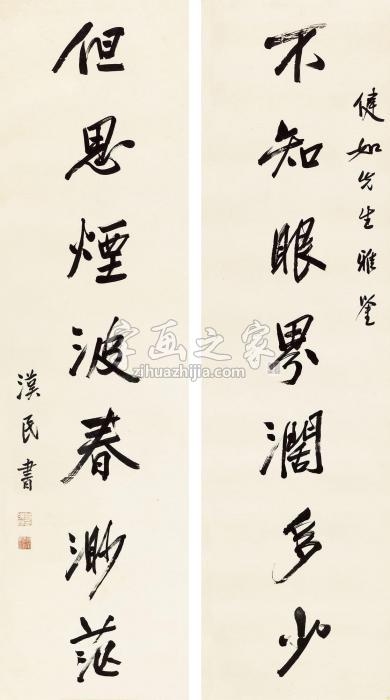 健如先生雅鉴
不知眼界濶多少
但思煙波春渺茫
漢民書
字画之家
zihuazhijia.com